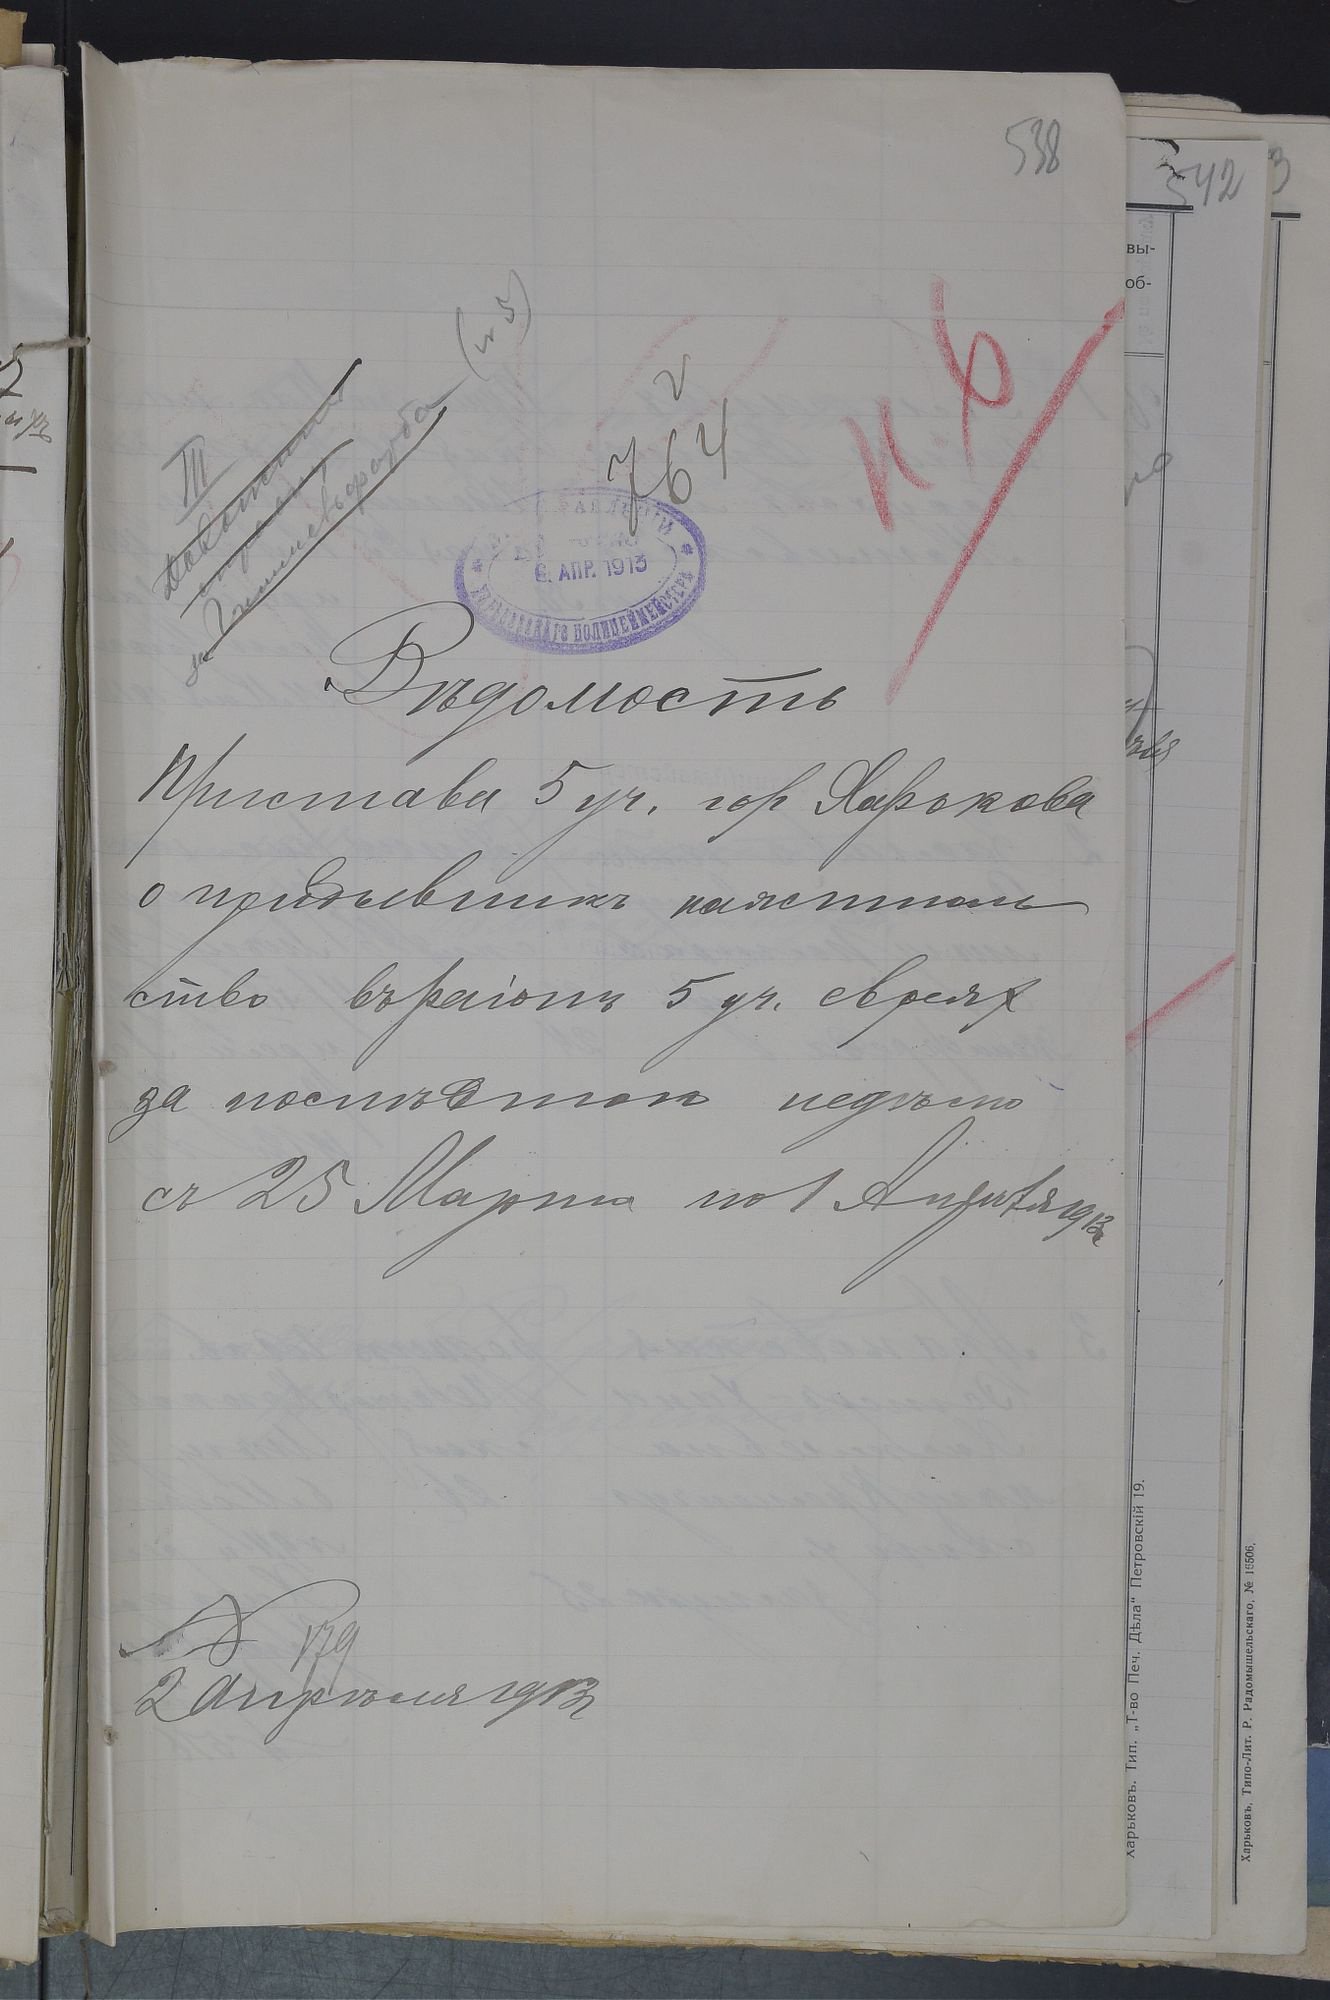 538
542
3
вы-
об-
(и 5)
н 6
III
764
УПРАВЛЕНIИ
6. АПР. 1913
ХАРЬКОВСКАГО ПОЛИЦЕЙМЕЙСТЕРА
Вѣдомость
Пристава 5 уч. гор Харькова
о прибывшихъ на жительство
ство въ раіонъ 5 уч. евреях
за послѣднюю недѣлю
съ 25 Марта по 1 Апрѣля 1913
№ 179
2 Апрѣля 1913
Харьковъ. Тип. „Т-во Печ. Дѣла" Петровскій 19.
Харьковъ, Типо-Лит. Р. Радомышельскаго, № 16506.